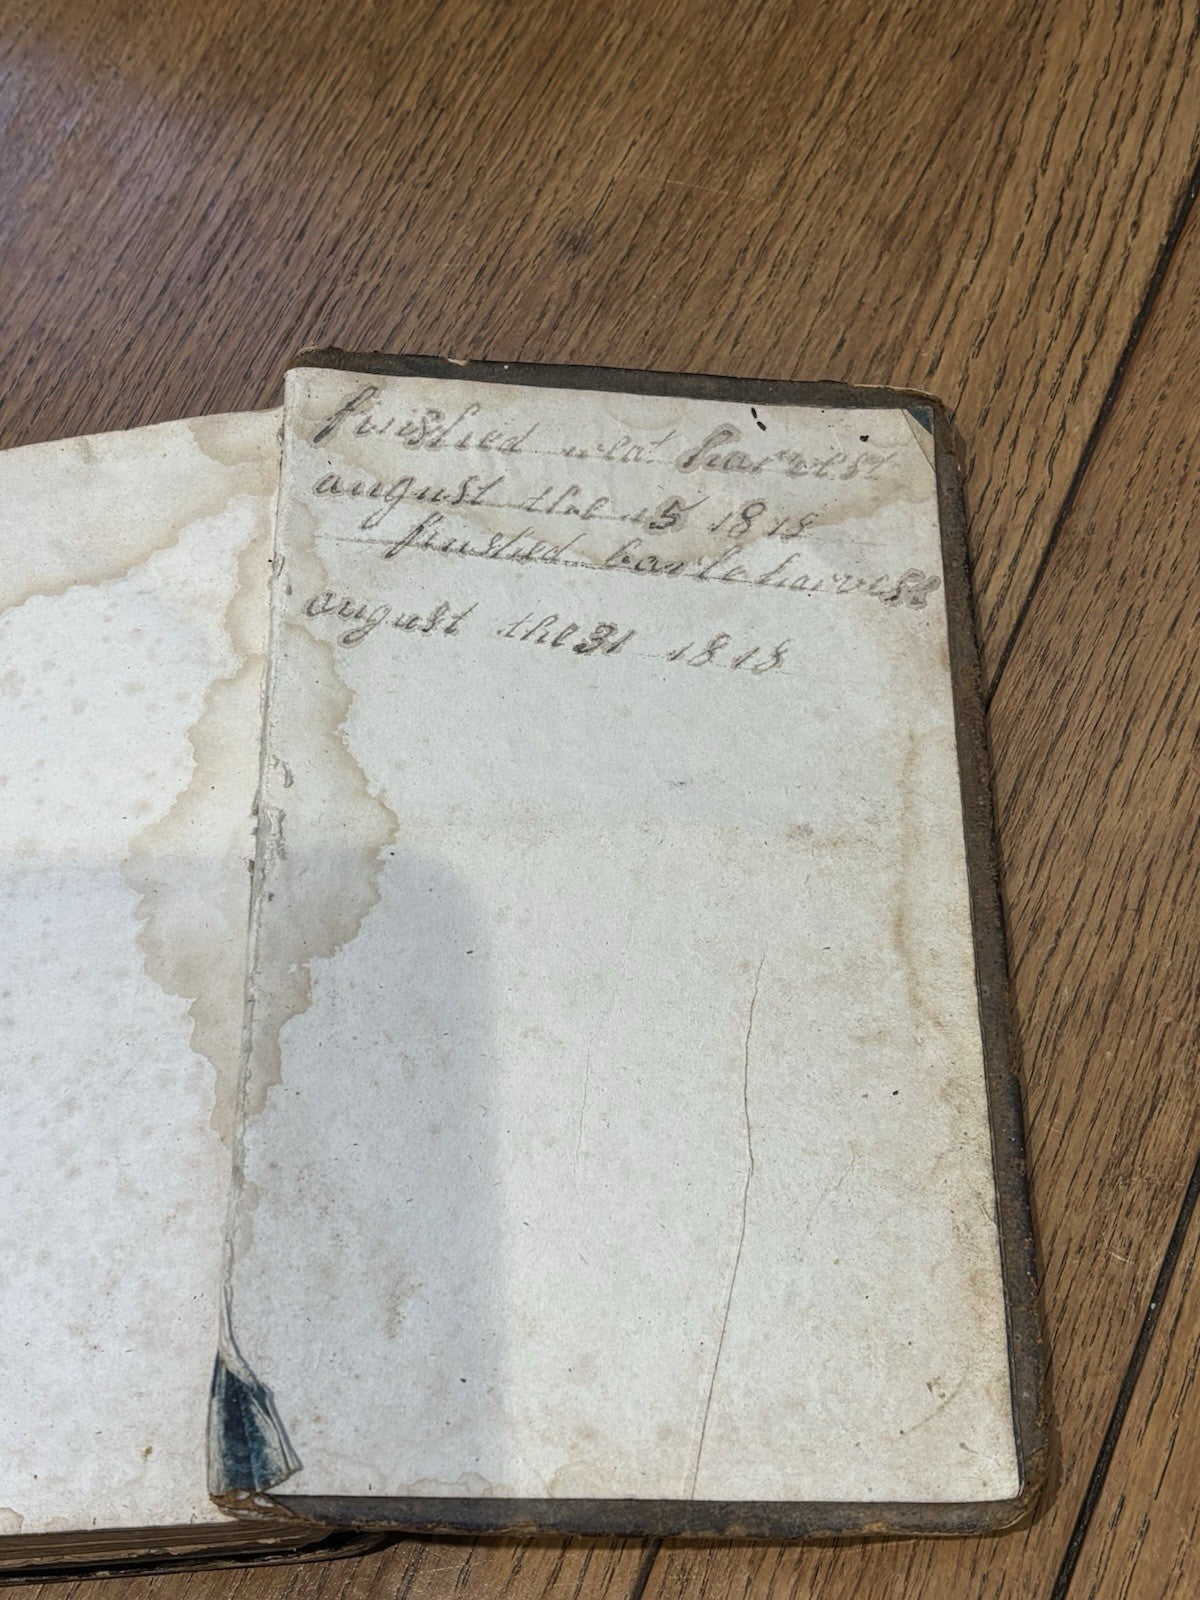 finished weat harvest
august the 15 1818
finished barle harvest
august the 31 1818